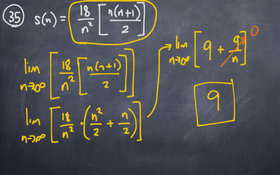 35 s(n) = 18/n² [ n(n+1)/2 ]
lim n→∞ [ 18/n² [ n(n+1)/2 ] ]
lim n→∞ [ 18/n² · ( n²/2 + n/2 ) ]
lim n→∞ [ 9 + 9/n ] 0
9